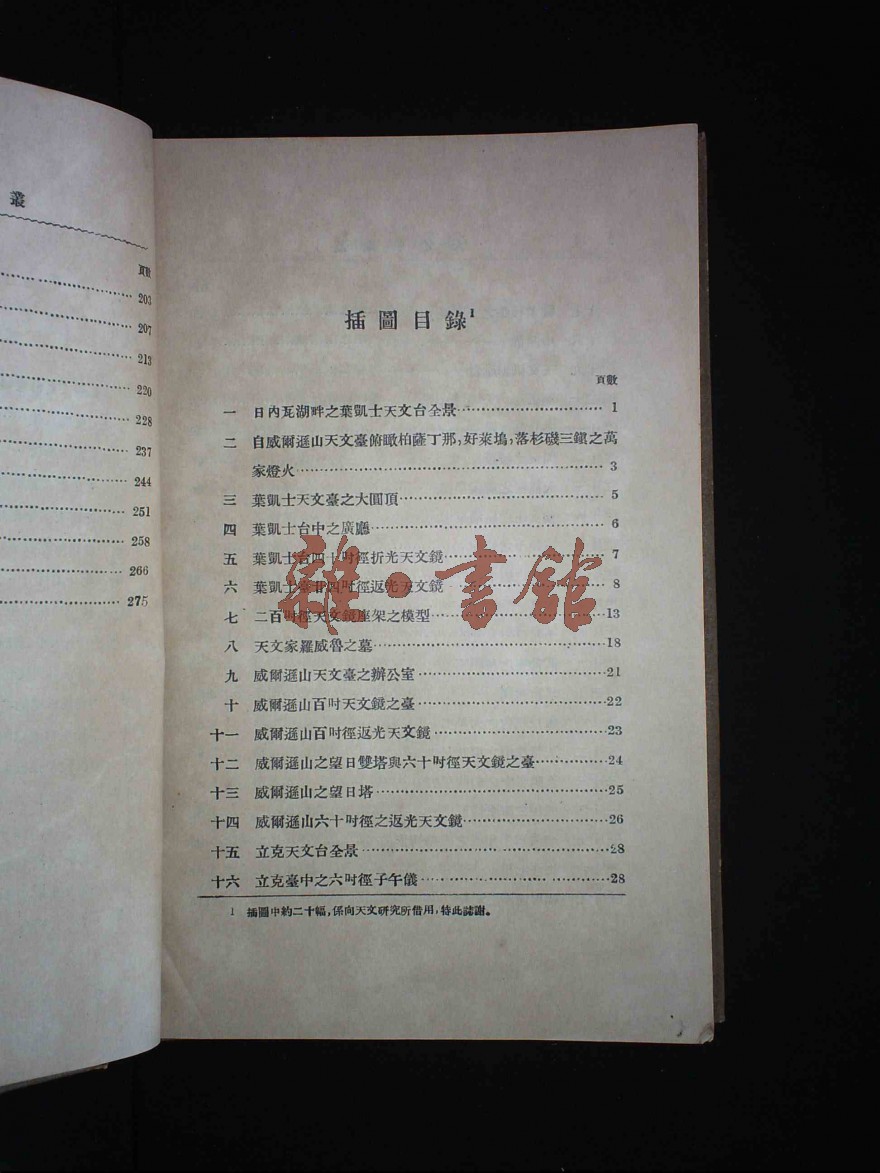 叢
頁數
203
207
213
220
228
237
244
251
258
266
275
插圖目錄1
頁數
一 日內瓦湖畔之葉凱士天文台全景 1
二 自威爾遜山天文臺俯瞰柏薩丁那,好萊塢,落杉磯三鎮之萬
家燈火 3
三 葉凱士天文臺之大圓頂 5
四 葉凱士台中之廣廳 6
五 葉凱士台四十吋徑折光天文鏡 7
六 葉凱士臺廿四吋徑返光天文鏡 8
七 二百吋徑天文鏡座架之模型 13
八 天文家羅威魯之墓 18
九 威爾遜山天文臺之辦公室 21
十 威爾遜山百吋天文鏡之臺 22
十一 威爾遜山百吋徑返光天文鏡 23
十二 威爾遜山之望日雙塔與六十吋徑天文鏡之臺 24
十三 威爾遜山之望日塔 25
十四 威爾遜山六十吋徑之返光天文鏡 26
十五 立克天文台全景 28
十六 立克臺中之六吋徑子午儀 28
1 插圖中約二十幅,係向天文研究所借用,特此誌謝。
雜·書館